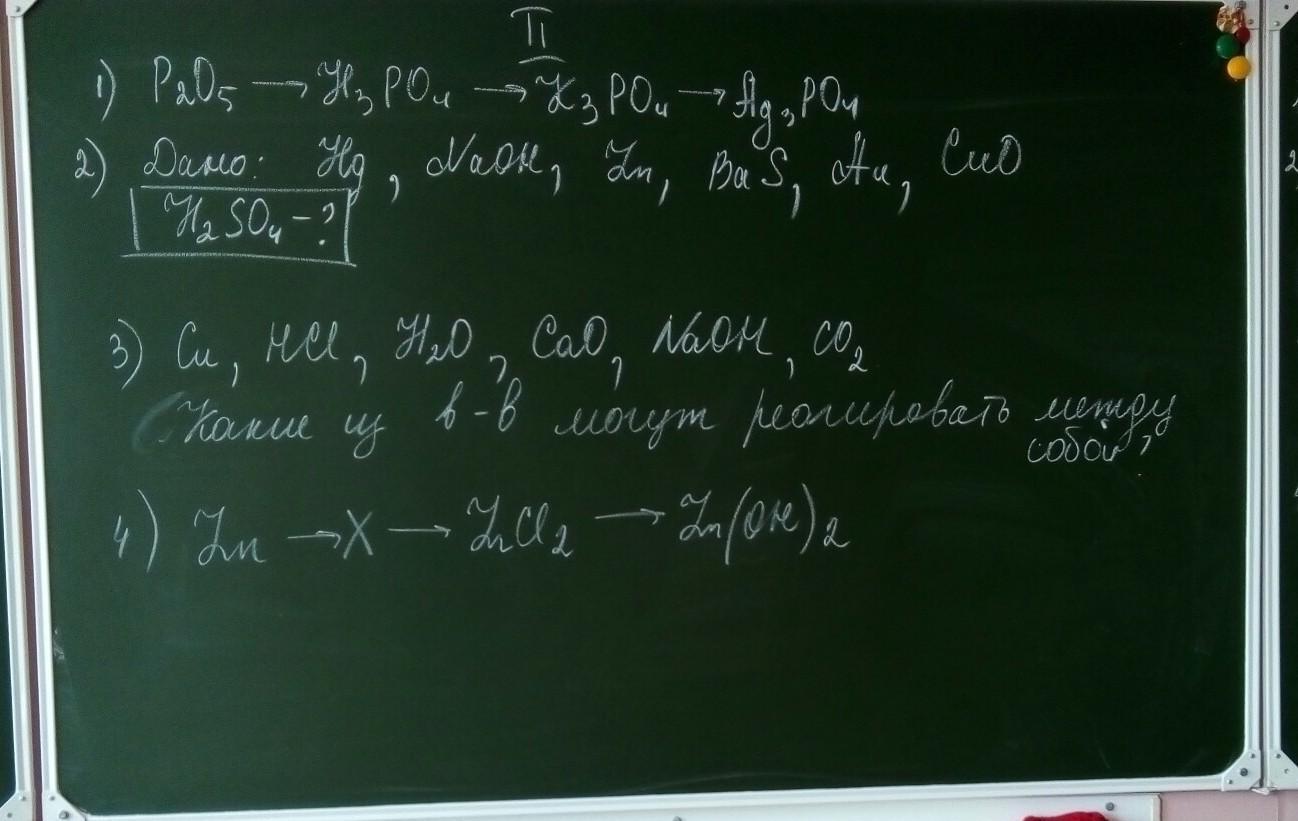 II
1) P₂O₅ → H₃PO₄ → K₃PO₄ → Ag₃PO₄
2) Дано: Hg, NaOH, Zn, BaS, Au, CuO
H₂SO₄ - ?
3) Cu, HCl, H₂O, CaO, NaOH, CO₂
Какие из в-в могут реагировать между
собой?
4) Zn → X → ZnCl₂ → Zn(OH)₂